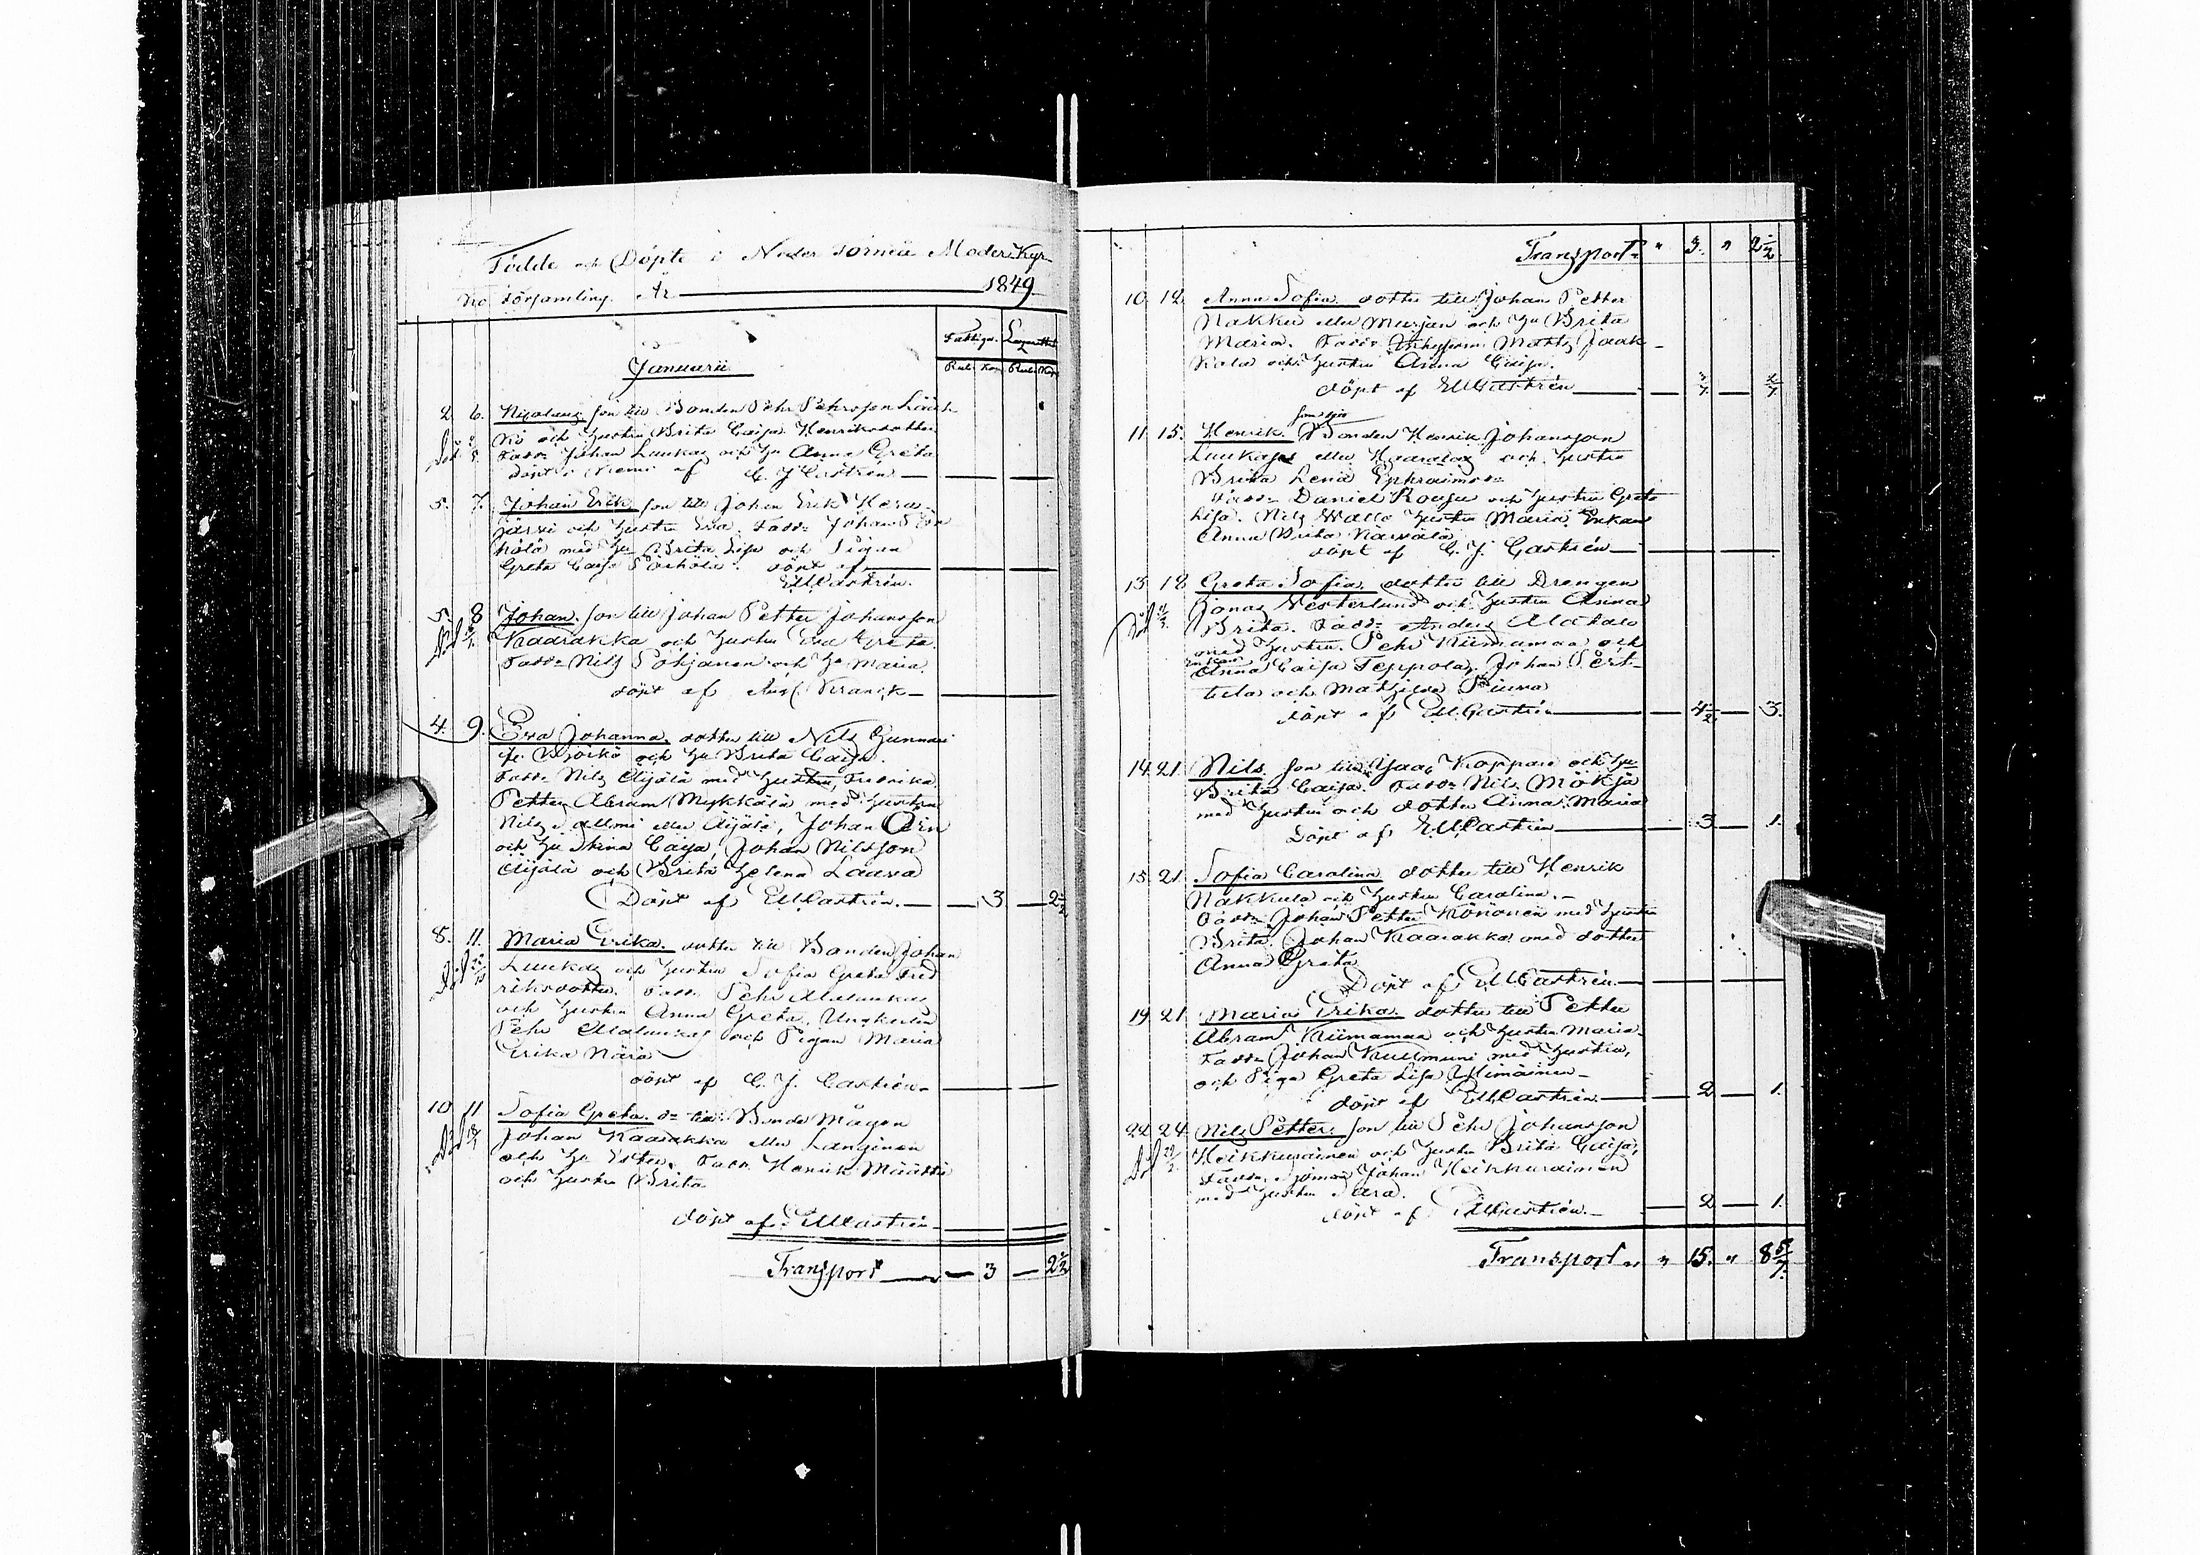 Födde och Döpte i Neder Torneå Moder Kyr-
ko församling År 1849
Fattiga. Lazarettet
Januarii
Rub. Kop. Rub. Kop.
2. 6. Nicolaus son till Bonden Pehr Pehrsson
ko och hustru Brita Caisa Henriksdotter
Död Fadd: Johan Luukas och hu Anna Greta
döpt i Kemi af C. J. Castrén
5. 7. Johan Erik son till Johan Erik
järvi och hustru Eva. Fadd: Johan
hölä med hu Brita Lisa och Pigan
Greta Caisa döpt af
EMCastrén.
5. 8 Johan son till Johan Petter Johansson
Död Kaarakka och hustru Eva Greta.
Fadd: Nils Pohjanen och hu Maria
döpt af And. Kranck
4. 9. Eva Johanna dotter till Nils Gunnari
Björkö och hu Brita Caisa.
Fadd: Nils Äijälä med hustru, Fredrika
Petter Abram Mykkälä med hustru
Nils eller Äijälä, Johan
och hu Stina Caisa, Johan Nilsson
Äijälä och Brita Helena Laura
Döpt af EMCastrén. 3 2 1/2
8. 11. Maria Erika dotter till Bonden Johan
Död Luukas och hustru Sofia Greta Fred
riksdotter. Fadd: Pehr Alaluukas
och hustru Anna Greta, Ungkarlen
Pehr Alaluukas och Pigan Maria
Erika Närä
döpt af C. J. Castrén
10 11 Sofia Greta d: till Bonde Mågen
Död Johan Kaarakka eller Länginen
och hu Ester. Fadd: Henrik Määttä
och hustru Brita
döpt af EMCastrén
Transport 3 2 1/2
Transport " 3. " 2 1/2
10. 12. Anna Sofia dotter till Johan Petter
Nakku eller Marjan och hu Brita
Maria. Fadd: Matts Jaak-
kola och hustru Anna Caisa.
döpt af EMCastrén
son till
11. 15. Henrik Bonden Henrik Johansson
Luukas eller och hustru
Brita Lena Ephraimsd:
Fadd: Daniel Rousu och hustru Greta
Lisa. Nils Wallo hustru Maria Enkan
Anna Brita
döpt af C. J. Castrén
13 18 Greta Sofia dotter till Drengen
Död Jonas Westerlund och hustru Anna
Brita. Fadd: Anders Alatalo
med hustru. Pehr Kiimamaa och
Anna Caisa Teppola, Johan Pert-
tula och Mathilda
döpt af EMCastrén 4 1/2 3.
14. 21. Nils son till Koppari och hu
Brita Caisa. Fadd: Nils
med hustru och dotter Anna Maria
Döpt af EMCastrén 3 1.
15. 21. Sofia Carolina dotter till Henrik
Nakkula och hustru Carolina.
Fadd: Johan Petter Könönen med hustru
Brita, Johan Kaarakka med dotter
Anna Greta
Döpt af EMCastrén
19. 21. Maria Erika dotter till Petter
Abram Kiimamaa och hustru Maria
Fadd: Johan Kullmuni med hustru,
och Piga Greta Lisa Ylimäinen
döpt af EMCastrén 2 1.
22. 24. Nils Petter son till Pehr Johansson
Död Heikkurainen och hustru Brita Caisa,
Fadd: Johan Heikkurainen
med hustru Sara.
döpt af EMCastrén 2 1.
Transport " 15. " 8 5/7